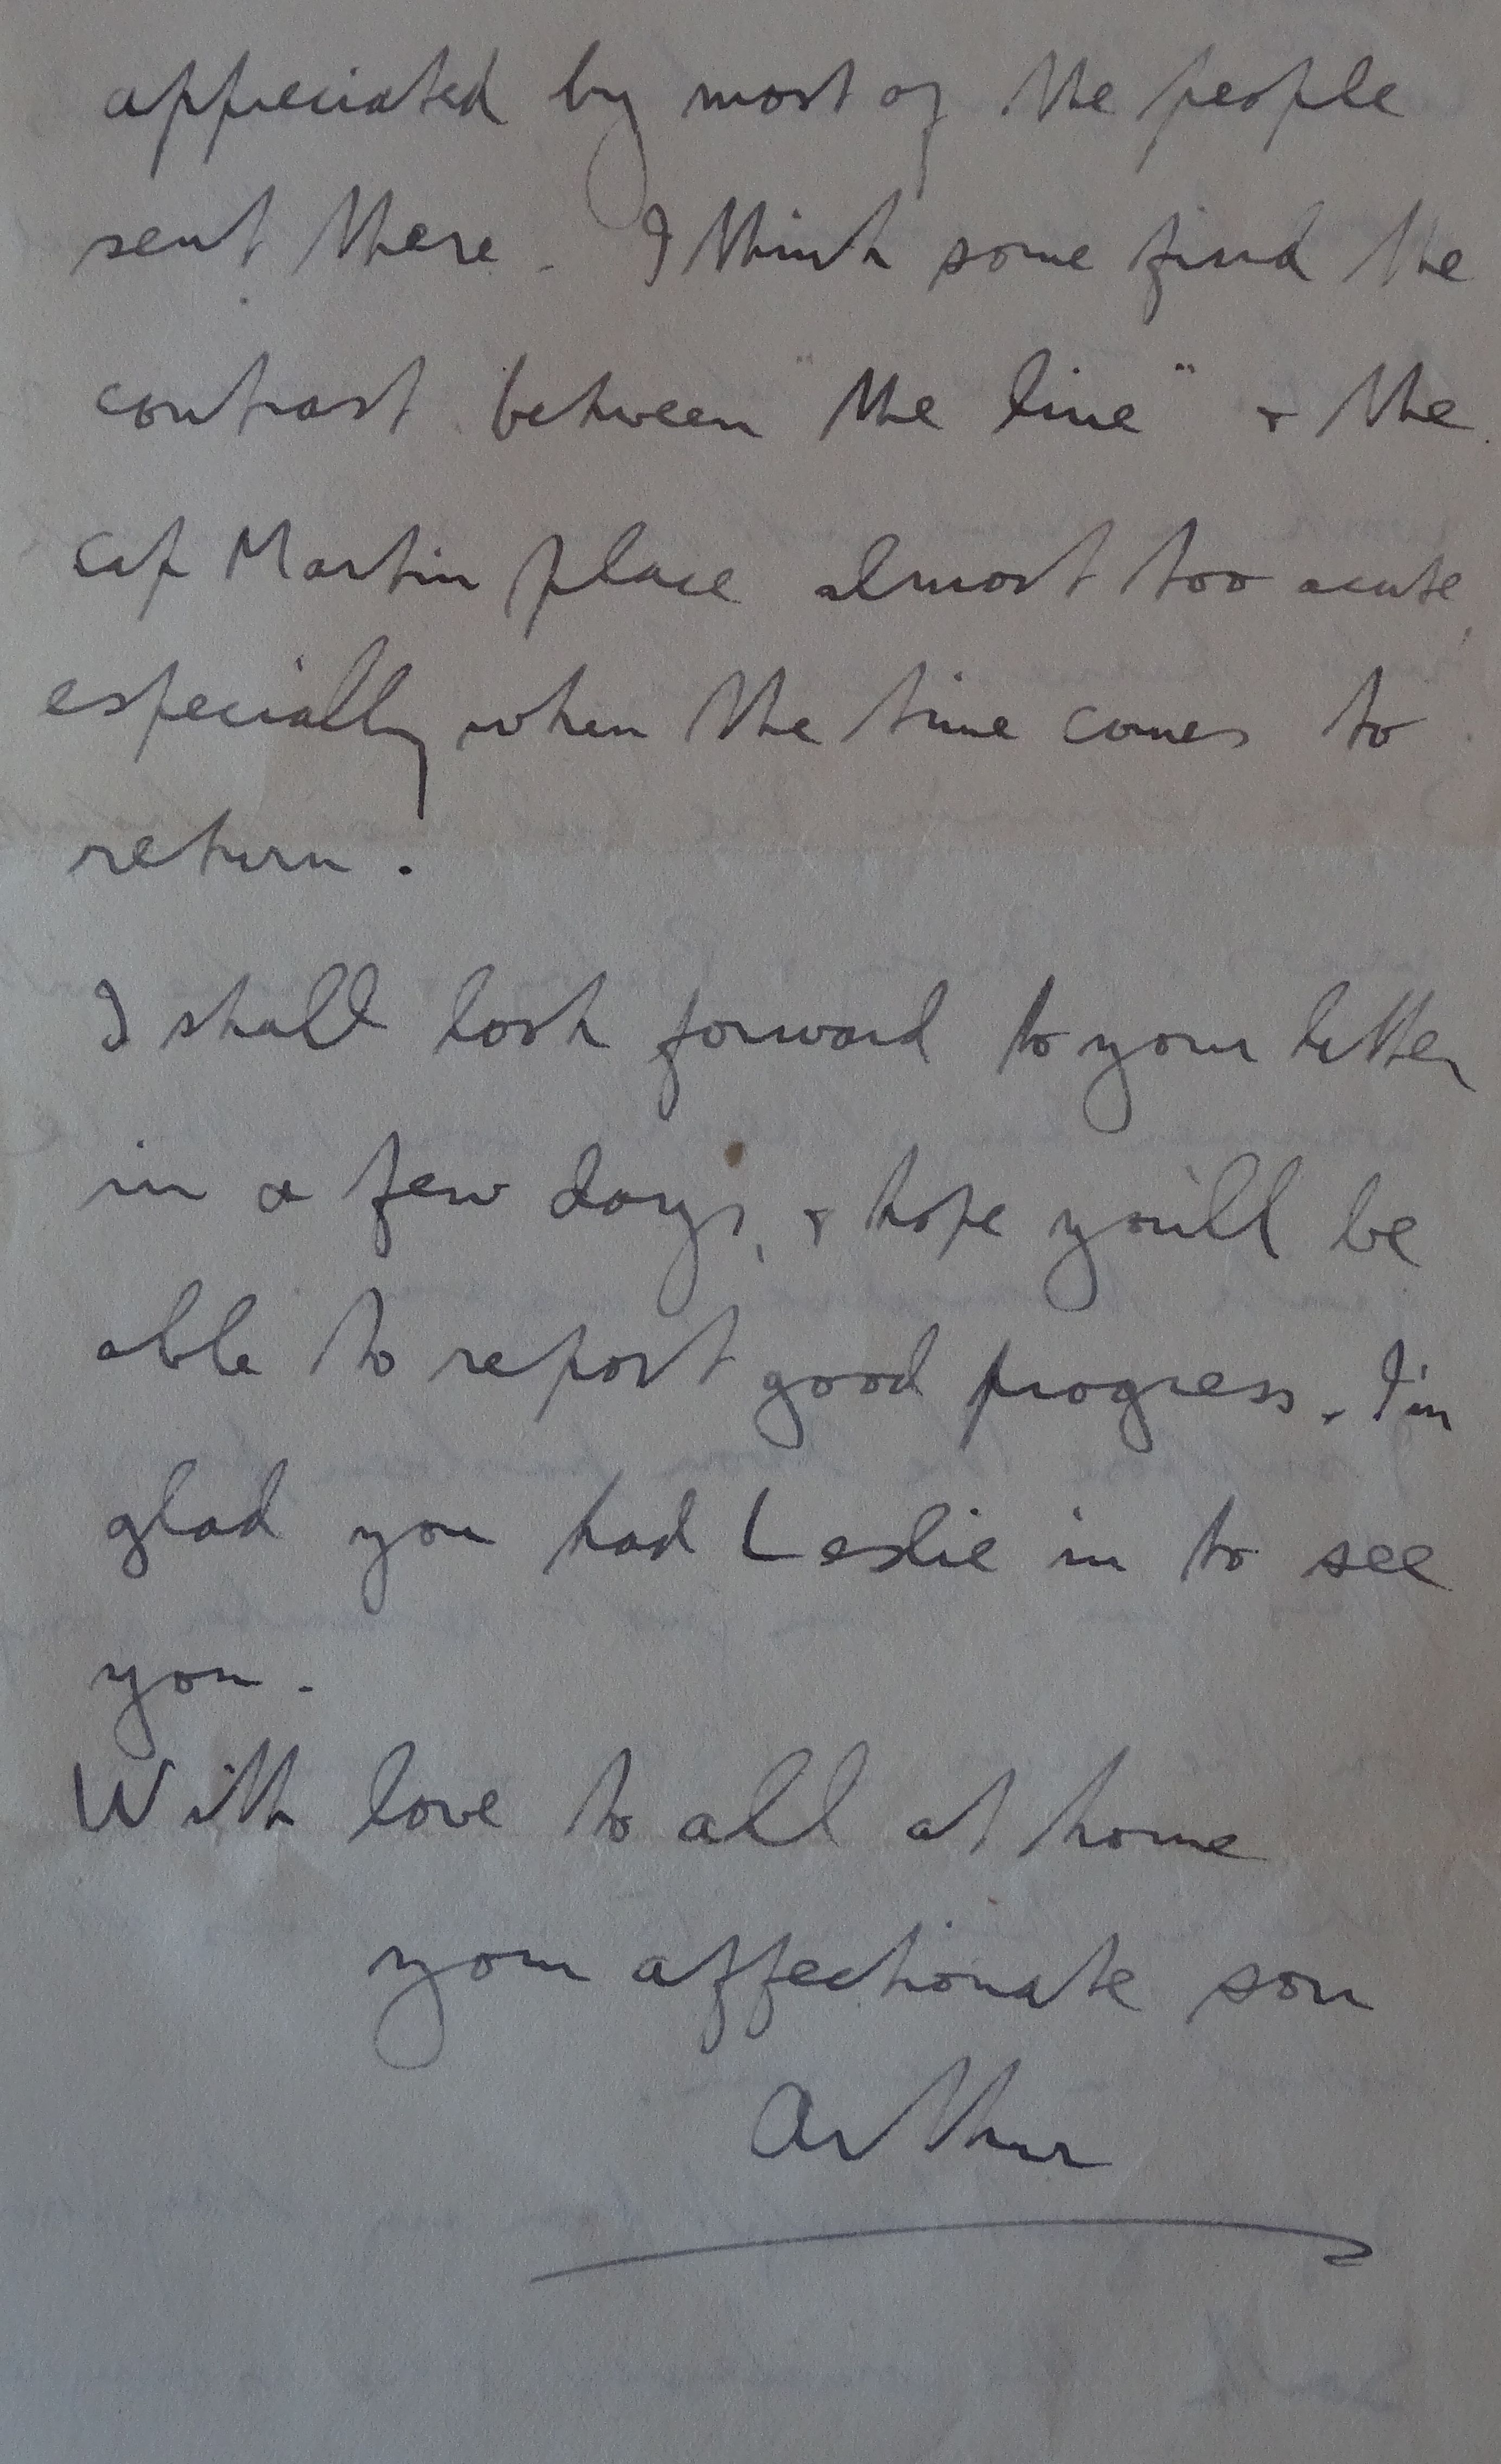 appreciated by most of the people
sent there. I think some find the
contrast between "the line" & the
Cap Martin place almost too acute,
especially when the time comes to
return.
I shall look forward to your letter
in a few days, & hope you'll be
able to report good progress. I'm
glad you had Leslie in to see
you.
With love to all at home
your affectionate son
Arthur